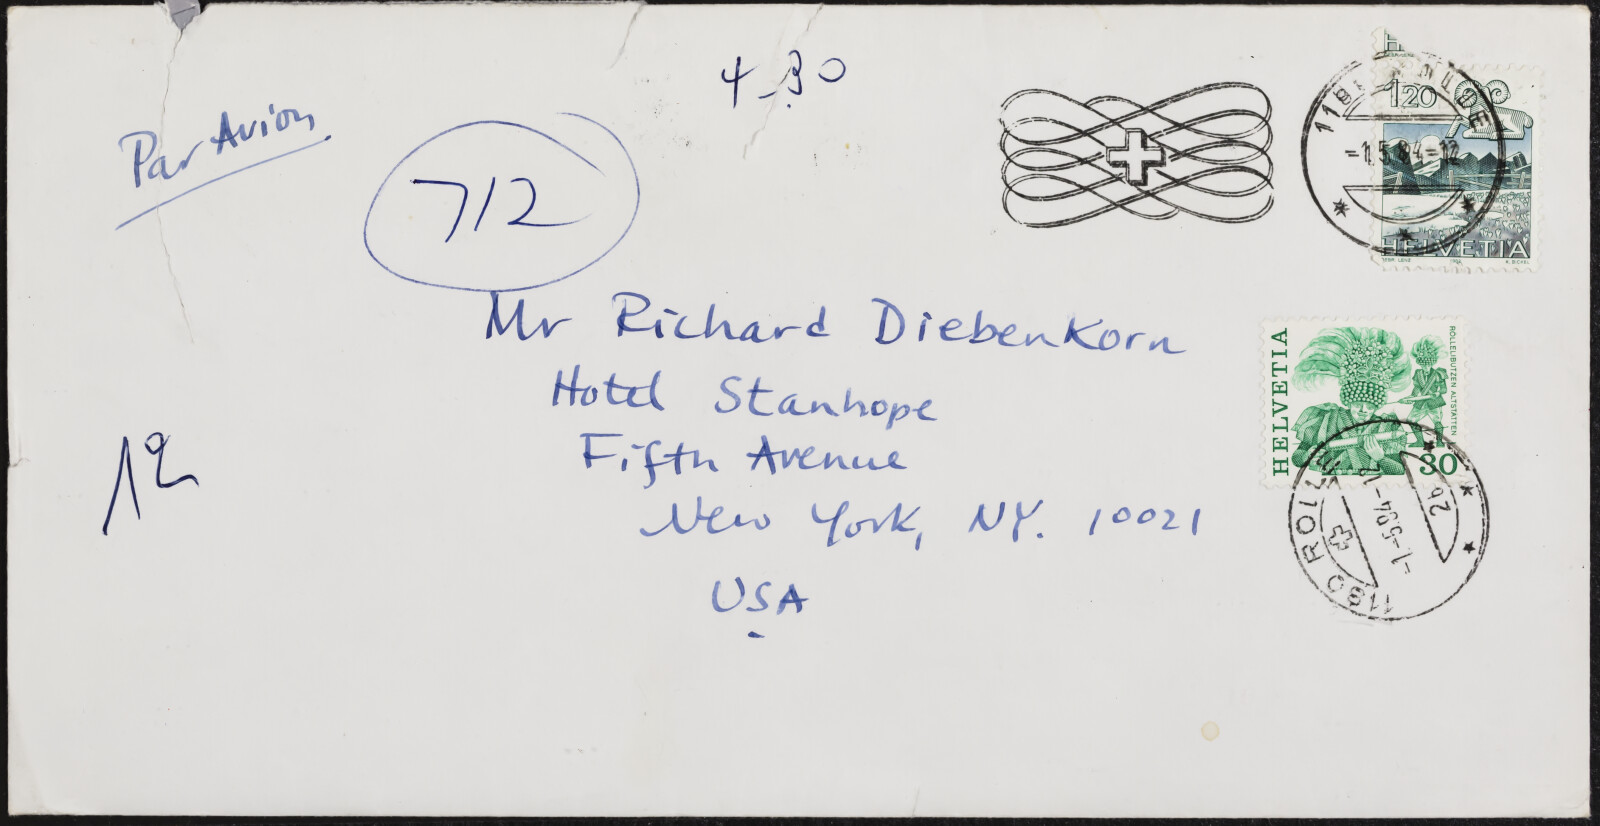 4-30
Par Avion
712
Mr Richard Diebenkorn
Hotel Stanhope
Fifth Avenue
New York, NY. 10021
USA
12
1.20
-1.5.84-12
HELVETIA
HELVETIA
RÖLLELIBUTZEN ALTSTÄTTEN
30
1180 ROLLE
-1.-5.84-